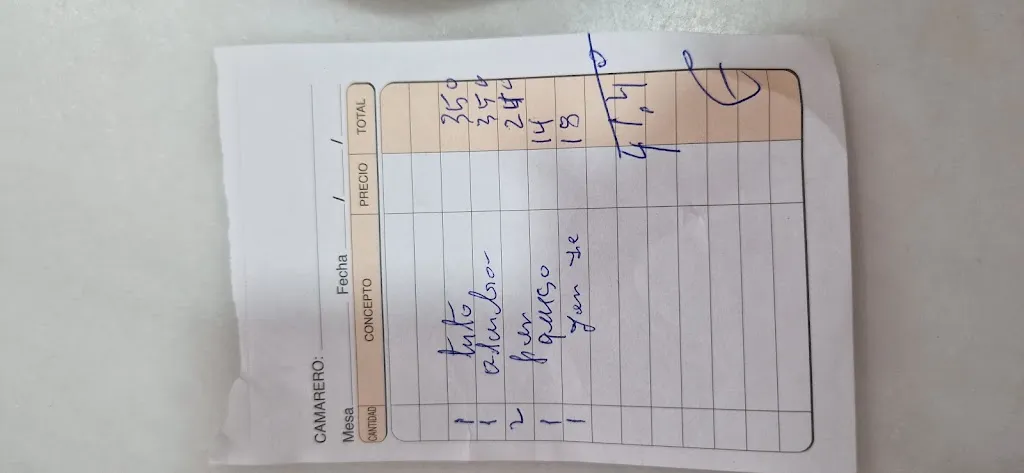 CAMARERO:
Mesa Fecha / /
CANTIDAD CONCEPTO PRECIO TOTAL
1 tinto 350
1 350
2 pan 240
1 queso 14
1 18
41,40